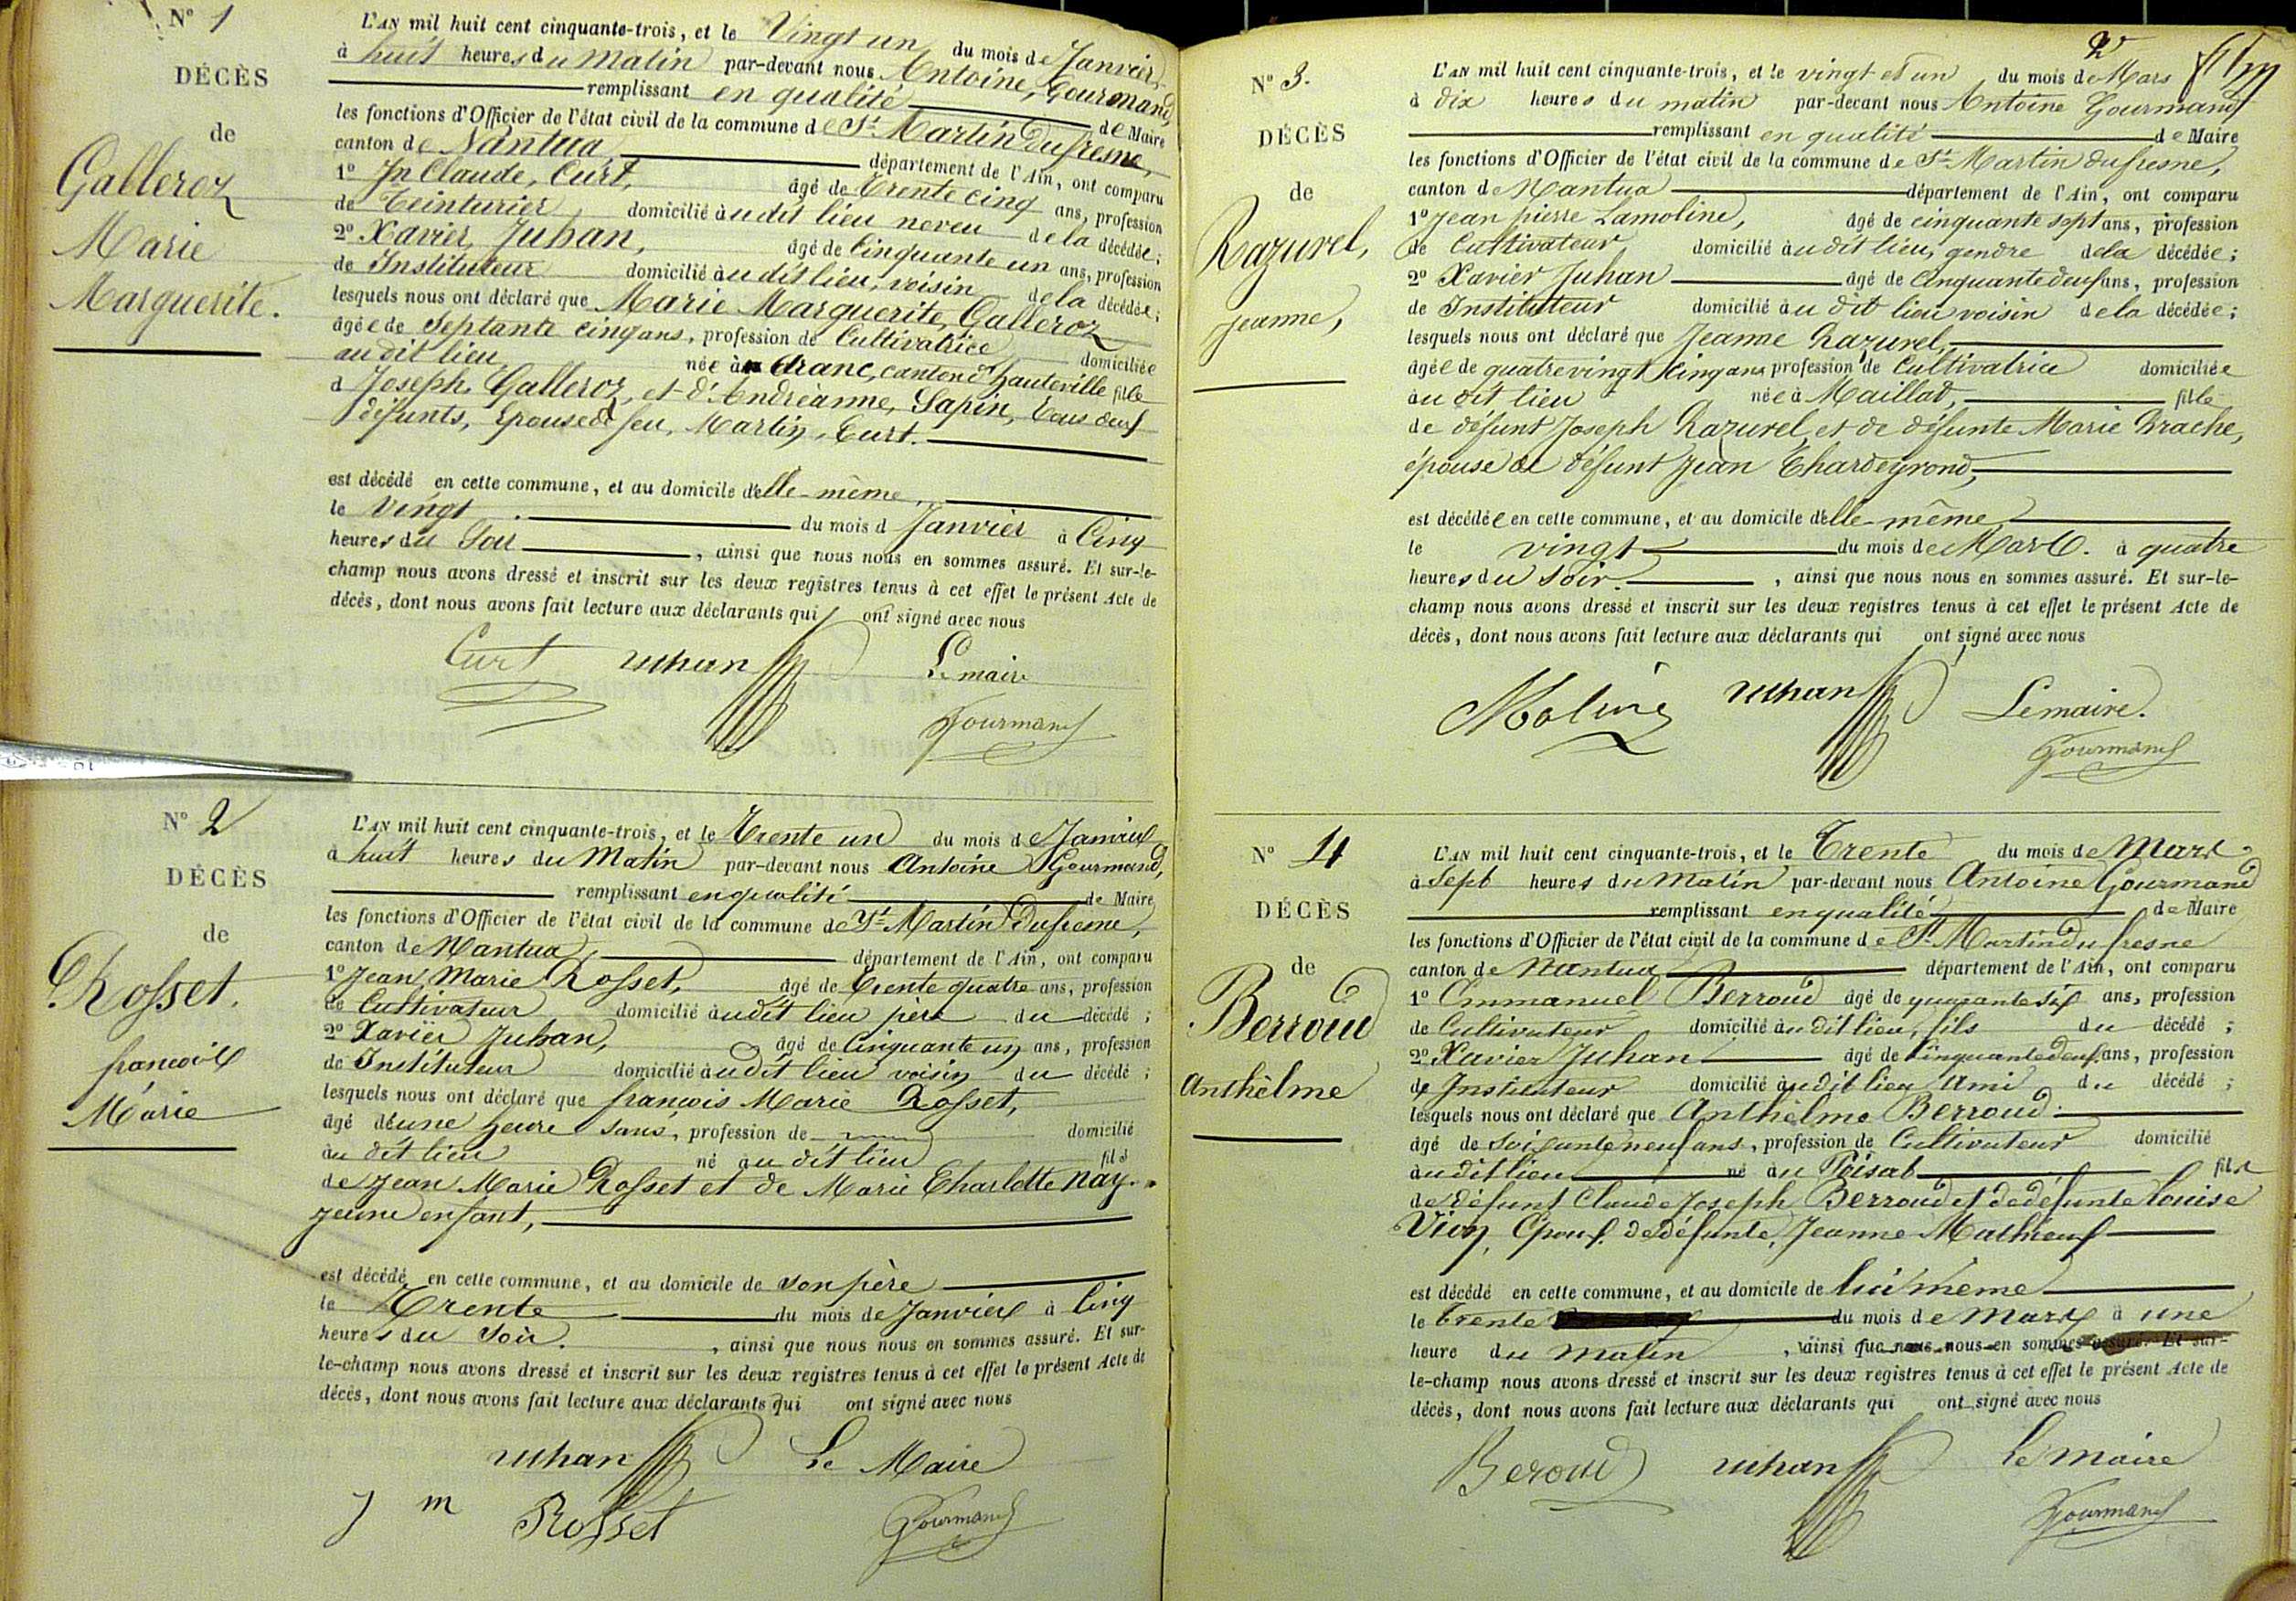 Nº 1
DÉCÈS
de
Galleroz
Marie
Marguerite.
L'AN mil huit cent cinquante-trois, et le Vingt un du mois de Janvier,
à huit heures du Matin par-devant nous Antoine, Gourmand,
remplissant en qualité de Maire
les fonctions d'Officier de l'état civil de la commune de St Martin Dufresne,
canton de Nantua département de l'Ain, ont comparu
1º Jn Claude, Curt, âgé de Trente cinq ans, profession
de Teinturier domicilié au dit lieu neveu de la décédée;
2º Xavier, Juhan, âgé de Cinquante un ans, profession
de Instituteur domicilié au dit lieu, voisin de la décédée;
lesquels nous ont déclaré que Marie Marguerite, Galleroz
âgée de Septante cinq ans, profession de Cultivatrice domiciliée
au dit lieu née à Aranc, canton d'hauteville fille
d Joseph, Galleroz, et d'Andréanne, Sapin, tous deux
défunts, Epouse de feu, Martin, Curt.
est décédé en cette commune, et au domicile d'elle-même,
le Vingt du mois d Janvier à Cinq
heures du Soir, ainsi que nous nous en sommes assuré. Et sur-le-
champ nous avons dressé et inscrit sur les deux registres tenus à cet effet le présent Acte de
décès, dont nous avons fait lecture aux déclarants qui ont signé avec nous
Curt Juhan Le maire
Gourmand
Nº 2
DÉCÈS
de
Rosset.
françois
Marie
L'AN mil huit cent cinquante-trois, et le Trente un du mois de Janvier
à huit heures du Matin par-devant nous Antoine Gourmand,
remplissant en qualité de Maire
les fonctions d'Officier de l'état civil de la commune de St Martin Dufresne,
canton de Nantua, département de l'Ain, ont comparu
1º Jean, Marie Rosset, âgé de Trente quatre ans, profession
de Cultivateur domicilié au dit lieu père du décédé;
2º Xavier Juhan, âgé de Cinquante un ans, profession
de Instituteur domicilié au dit lieu voisin du décédé;
lesquels nous ont déclaré que françois Marie Rosset,
âgé d'une heure sans, profession de domicilié
au dit lieu né au dit lieu fils
de Jean Marie Rosset et de Marie Charlotte Nay.
jeune enfant,
est décédé en cette commune, et au domicile de son père
le Trente du mois de Janvier à Cinq
heures du Soir. , ainsi que nous nous en sommes assuré. Et sur-
le-champ nous avons dressé et inscrit sur les deux registres tenus à cet effet le présent Acte de
décès, dont nous avons fait lecture aux déclarants qui ont signé avec nous
Juhan Le Maire
J m Rosset Gourmand
2
Nº 3.
DÉCÈS
de
Razurel,
Jeanne,
L'AN mil huit cent cinquante-trois, et le vingt et un du mois de Mars
à dix heures du matin par-devant nous Antoine Gourmand
remplissant en qualité de Maire
les fonctions d'Officier de l'état civil de la commune de St Martin dufresne,
canton de Nantua département de l'Ain, ont comparu
1º Jean pierre Lamoline, âgé de cinquante sept ans, profession
de Cultivateur, domicilié au dit lieu, gendre de la décédée;
2º Xavier Juhan âgé de Cinquante deux ans, profession
de Instituteur domicilié au dit lieu voisin de la décédée;
lesquels nous ont déclaré que Jeanne Razurel,
âgée de quatre vingt cinq ans profession de Cultivatrice domiciliée
au dit lieu née à Maillat, fille
de défunt Joseph Razurel, et de défunte Marie Brache,
épouse de défunt Jean Chardeyrond,
est décédée en cette commune, et au domicile d'elle-même,
le vingt du mois de Mars. à quatre
heures du soir. , ainsi que nous nous en sommes assuré. Et sur-le-
champ nous avons dressé et inscrit sur les deux registres tenus à cet effet le présent Acte de
décès, dont nous avons fait lecture aux déclarants qui ont signé avec nous
Juhan Le maire.
Gourmand
Nº 4
DÉCÈS
de
Berroud
Anthèlme
L'AN mil huit cent cinquante-trois, et le Trente du mois de Mars
à Sept heures du Matin par-devant nous Antoine Gourmand
remplissant en qualité de Maire
les fonctions d'Officier de l'état civil de la commune de St Martin du fresne
canton de Nantua département de l'Ain, ont comparu
1º Emmanuel Berroud âgé de quarante six ans, profession
de Cultivateur domicilié au dit lieu, fils du décédé;
2º Xavier Juhan âgé de Cinquante deux ans, profession
de Instituteur domicilié au dit lieu Ami du décédé;
lesquels nous ont déclaré que Anthèlme Berroud.
âgé de soixante neuf ans, profession de Cultivateur domicilié
au dit lieu né au Poisat fils
de défunt Claude Joseph Berroud et de défunte Louise
Epoux de défunte, Jeanne Mathieux
est décédé en cette commune, et au domicile de lui même
le trente du mois de Mars à une
heure du Matin , ainsi que nous nous en sommes assuré. Et sur-
le-champ nous avons dressé et inscrit sur les deux registres tenus à cet effet le présent Acte de
décès, dont nous avons fait lecture aux déclarants qui ont signé avec nous
Beroud Juhan le maire
Gourmand